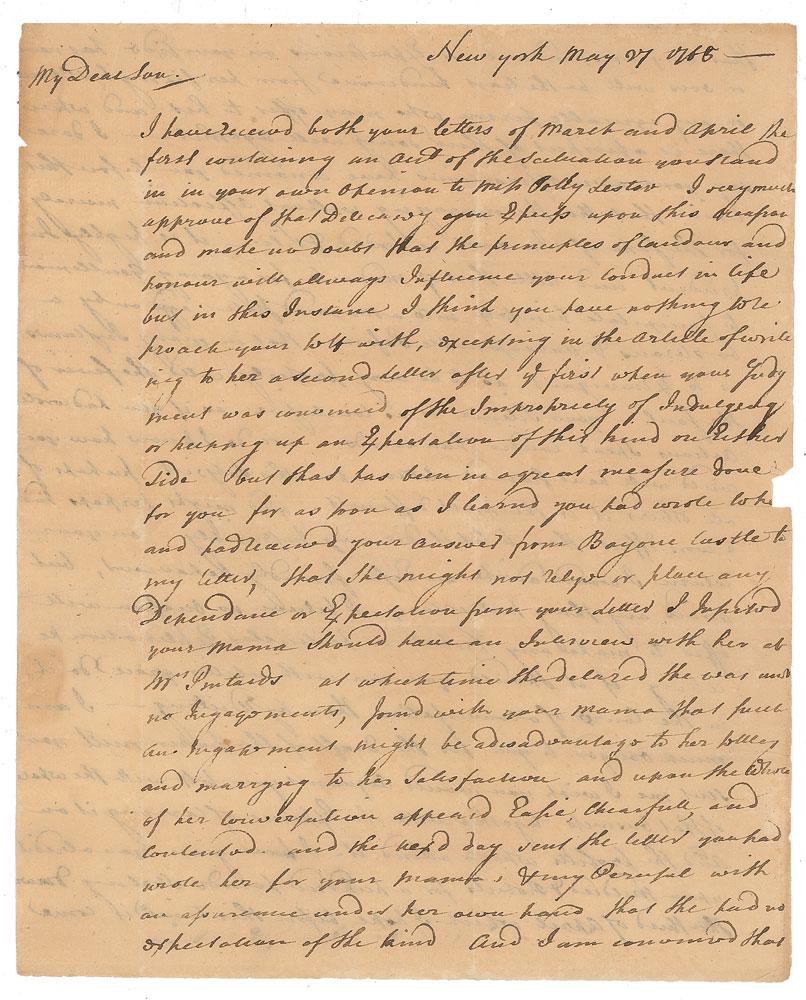 New york May 27 1768
My Dear Son.
I have receivd both your letters of March and April the
first containing an Acct of the Scituation you stand
in in your own Opinion to Miss Polly I very much
approve of that Delicacy you Express upon this
and make no doubt that the principles of Candour and
honour will allways Influence your Conduct in life
but in this Instance I think you have nothing to re
proach your self with, excepting in the Article of writ
ing to her a second letter after ye first when your Judg
ment was convinced of the Impropriety of Indulgeing
or keeping up an Expectation of this kind on Either
Side but that has been in a great measure done
for you for as soon as I learnd you had wrote to he
and had receivd your answer from Bayone Castle to
my letter, that She might not relye or place any
Dependance or Expectation from your letter I Insisted
your Mama Should have an Interview with her at
Mrs Pintards at which time she declared she was und
no Ingagements, Joind with your Mama that such
an Ingagement might be a disadvantage to her
and marrying to her Satisfaction and upon the Whole
of her Conversation appeard Easie, Chearfull, and
Contented. and the next day sent the letter you had
wrote her for your Mama, & my Perusal with
an assurance under her own hand that she had no
expectation of the kind And I am convinced that